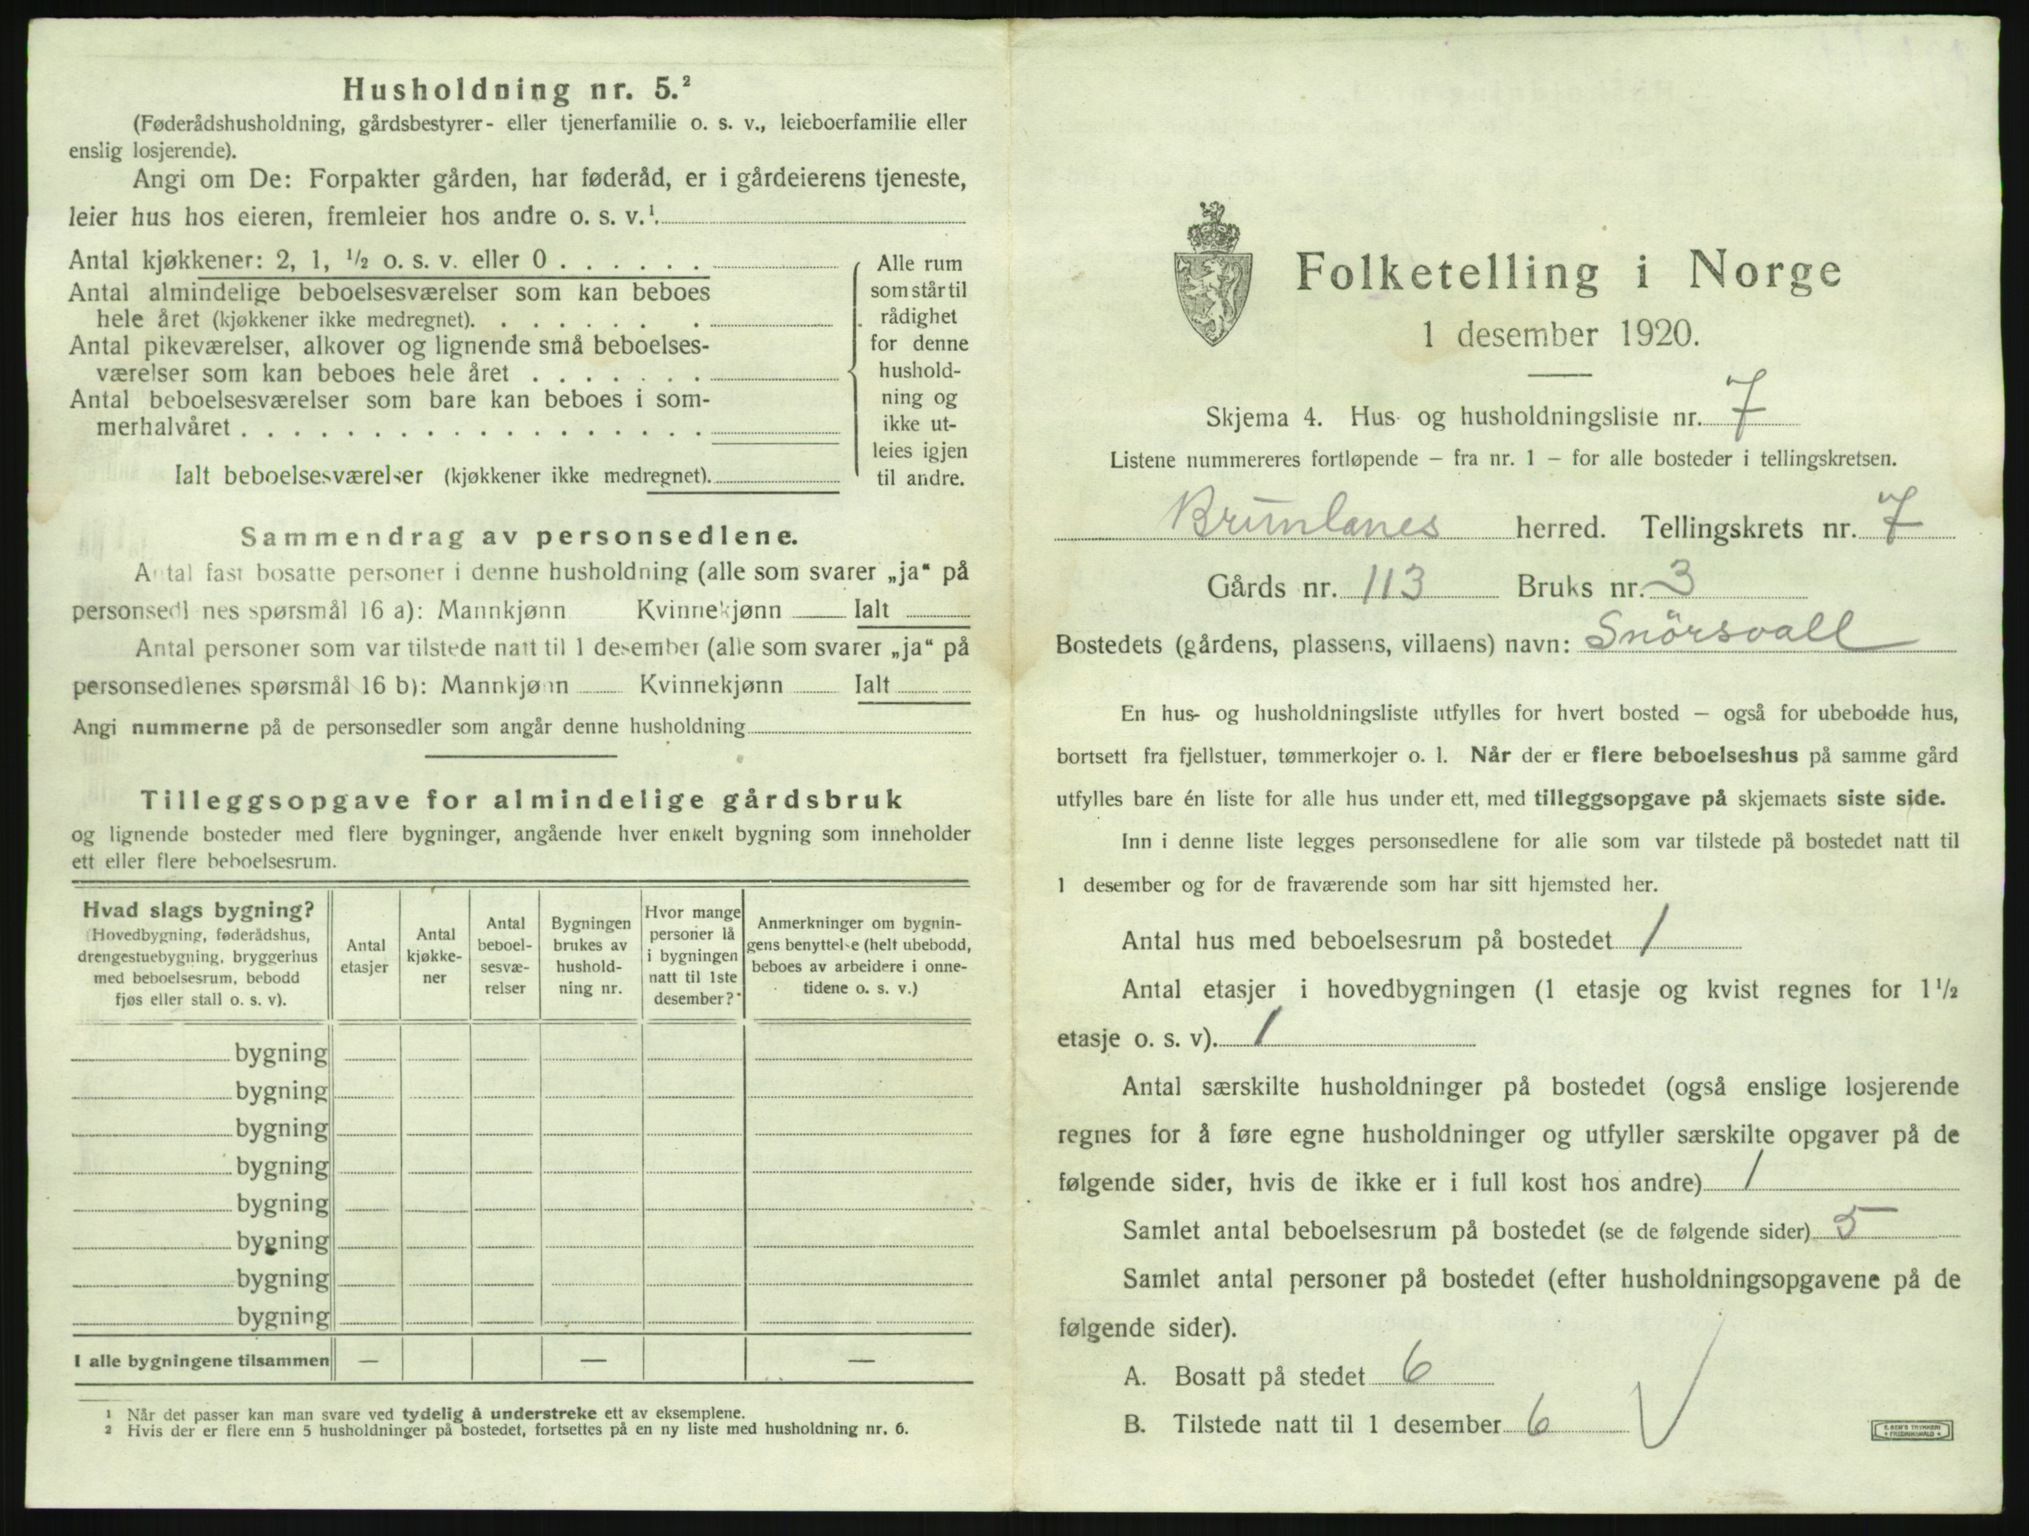 Husholdning nr. 5.²
(Føderådshusholdning, gårdsbestyrer- eller tjenerfamilie o. s. v., leieboerfamilie eller
enslig losjerende).
Angi om De: Forpakter gården, har føderåd, er i gårdeierens tjeneste,
leier hus hos eieren, fremleier hos andre o. s. v.¹.
Antal kjøkkener: 2, 1, ½ o. s. v. eller 0 . . . . . .
Antal almindelige beboelsesværelser som kan beboes
hele året (kjøkkener ikke medregnet). . . . . . . .
Antal pikeværelser, alkover og lignende små beboelses-
værelser som kan beboes hele året . . . . . . .
Antal beboelsesværelser som bare kan beboes i som-
merhalvåret . . . . . . . . . . . . . . . . . .
Ialt beboelsesværelser (kjøkkener ikke medregnet).
Alle rum
som står til
rådighet
for denne
hushold-
ning og
ikke ut-
leies igjen
til andre.
Sammendrag av personsedlene.
Antal fast bosatte personer i denne husholdning (alle som svarer „ja“ på
personsedlenes spørsmål 16 a): Mannkjønn Kvinnekjønn Ialt
Antal personer som var tilstede natt til 1 desember (alle som svarer „ja“ på
personsedlenes spørsmål 16 b): Mannkjønn Kvinnekjønn Ialt
Angi nummerne på de personsedler som angår denne husholdning
Tilleggsopgave for almindelige gårdsbruk
og lignende bosteder med flere bygninger, angående hver enkelt bygning som inneholder
ett eller flere beboelsesrum.
Hvad slags bygning?
(Hovedbygning, føderådshus,
drengestuebygning, bryggerhus
med beboelsesrum, bebodd
fjøs eller stall o. s. v).
Antal
etasjer
Antal
kjøkke-
ner
Antal
beboel-
sesvæ-
relser
Bygningen
brukes av
hushold-
ning nr.
Hvor mange
personer lå
i bygningen
natt til 1ste
desember?
Anmerkninger om bygnin-
gens benyttelse (helt ubebodd,
beboes av arbeidere i onne-
tidene o. s. v.)
bygning
bygning
bygning
bygning
bygning
bygning
bygning
bygning
I alle bygningene tilsammen — — —
¹ Når det passer kan man svare ved tydelig å understreke ett av eksemplene.
² Hvis der er flere enn 5 husholdninger på bostedet, fortsettes på en ny liste med husholdning nr. 6.
Folketelling i Norge
1 desember 1920.
Skjema 4. Hus- og husholdningsliste nr. 7
Listene nummereres fortløpende – fra nr. 1 – for alle bosteder i tellingskretsen.
Brunlanes herred. Tellingskrets nr. 7
Gårds nr. 113 Bruks nr. 3
Bostedets (gårdens, plassens, villaens) navn: Snörsvall
En hus- og husholdningsliste utfylles for hvert bosted – også for ubebodde hus,
bortsett fra fjellstuer, tømmerkojer o. l. Når der er flere beboelseshus på samme gård
utfylles bare én liste for alle hus under ett, med tilleggsopgave på skjemaets siste side.
Inn i denne liste legges personsedlene for alle som var tilstede på bostedet natt til
1 desember og for de fraværende som har sitt hjemsted her.
Antal hus med beboelsesrum på bostedet 1
Antal etasjer i hovedbygningen (1 etasje og kvist regnes for 1½
etasje o. s. v). 1
Antal særskilte husholdninger på bostedet (også enslige losjerende
regnes for å føre egne husholdninger og utfyller særskilte opgaver på de
følgende sider, hvis de ikke er i full kost hos andre) 1
Samlet antal beboelsesrum på bostedet (se de følgende sider) 5
Samlet antal personer på bostedet (efter husholdningsopgavene på de
følgende sider).
A. Bosatt på stedet 6
B. Tilstede natt til 1 desember 6